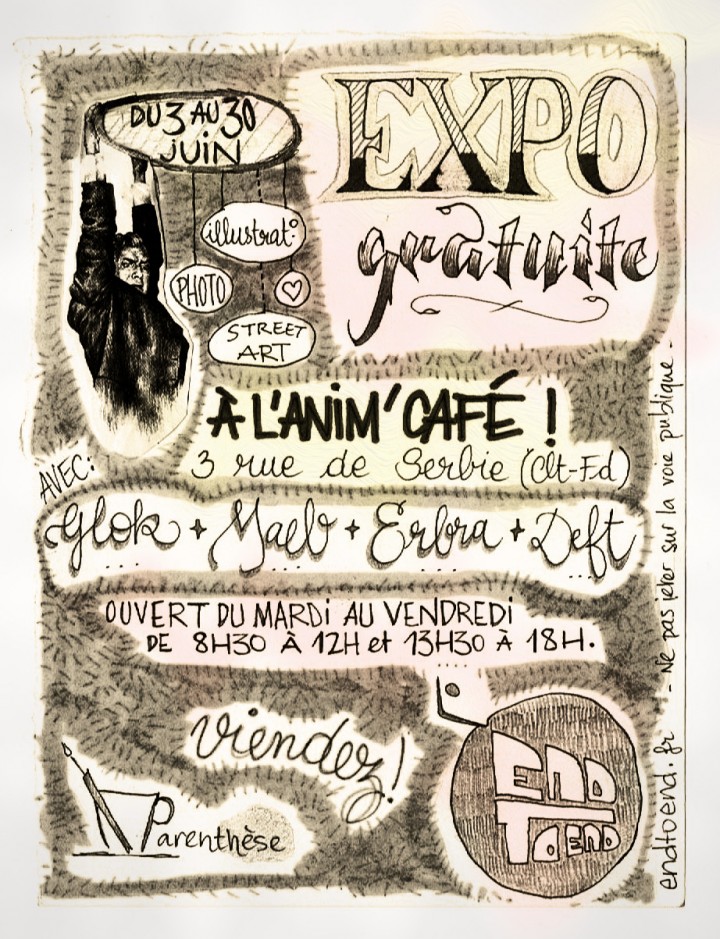 DU 3 AU 30
JUIN
EXPO
gratuite
illustrat°
PHOTO
STREET
ART
À L'ANIM'CAFÉ !
3 rue de Serbie (Clt-Fd)
AVEC:
Glok + Maeb + Erbra + Deft
OUVERT DU MARDI AU VENDREDI
DE 8H30 À 12H et 13H30 À 18H.
viendez!
Parenthèse
END
TO END
endtoend.fr - Ne pas jeter sur la voie publique -